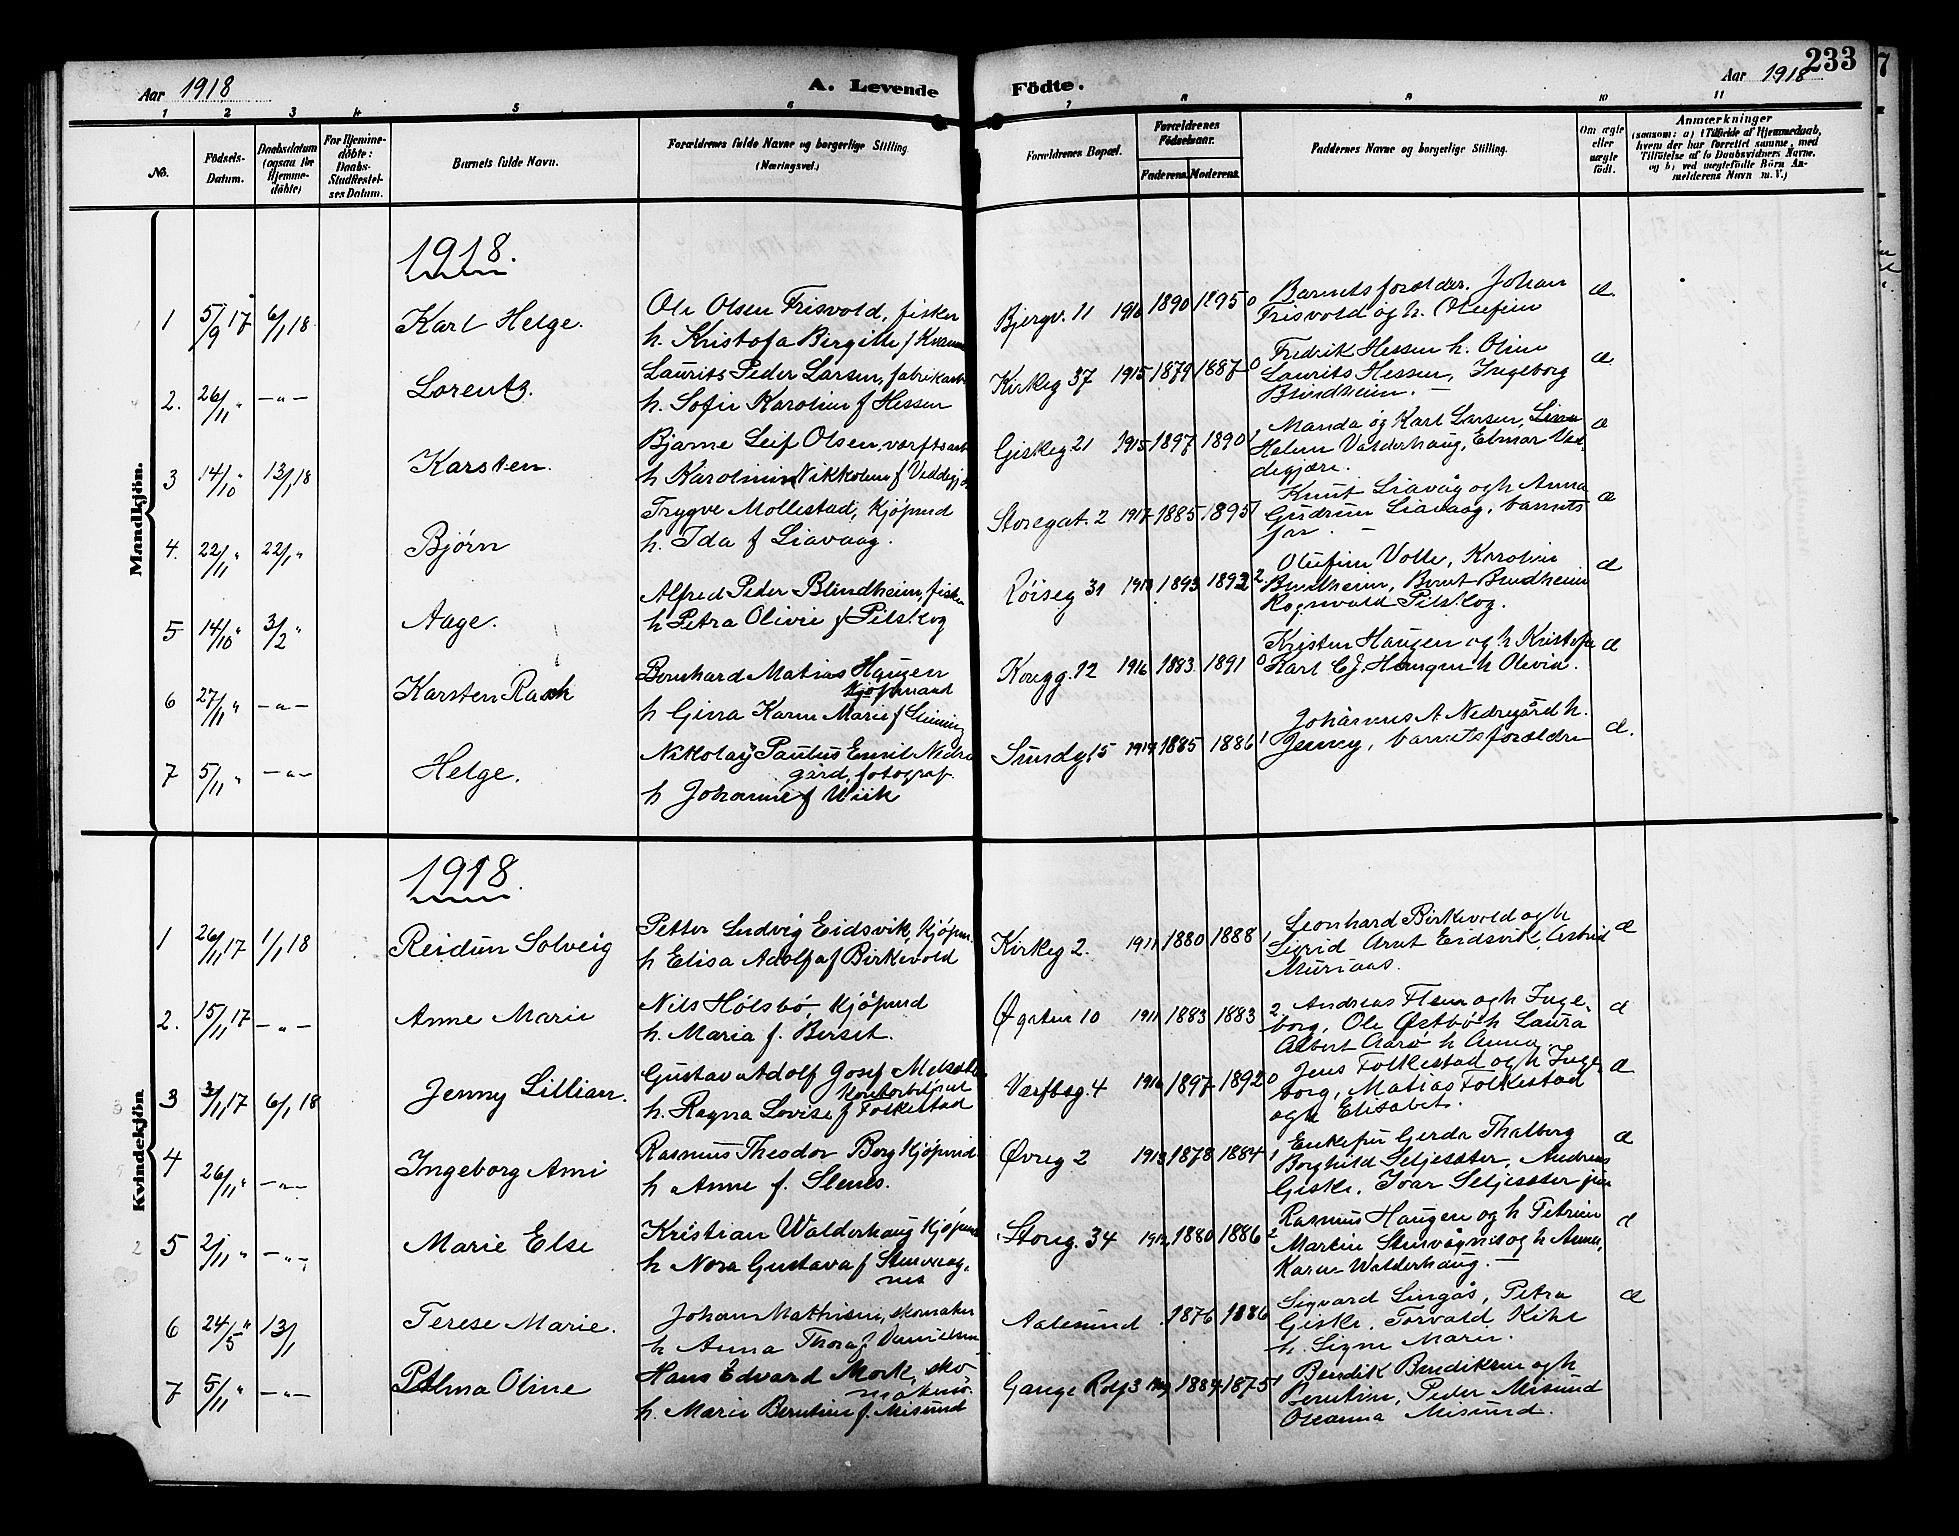 Aar 1918
A. Levende
Födte.
Aar 1918
233
1 2 3 4 5 6 7 8 9 10 11
No.
Födsels-
Datum.
Daabsdatum
(ogsaa for
Hjemme-
döbte)
For Hjemme-
döbte:
Daabs-
Stadfæstel-
ses Datum.
Barnets fulde Navn.
Forældrenes fulde Navne og borgerlige Stilling
(Næringsvei.)
Forældrenes Bopæl.
Forældrenes
Födselsaar.
Faderens. Moderens.
Faddernes Navne og borgerlige Stilling.
Om ægte
eller
uægte
födt.
Anmærkninger
(saasom: a) i Tilfælde af Hjemmedaab,
hvem der har forrettet samme, med
Tilföielse af to Daabsvidners Navne,
og b) ved uægtefödte Börn An-
melderens Navn m. V.)
Mandkjön.
1918.
1 5/9 17 6/1 18 Karl Helge. Ole Olsen Frisvold, fisker
h. Kristofa Birgitte f Kvamme
Bjergv. 11 1916 1890 1895 0 Barnets forælder. Johan
Frisvold og h. Olufine
æ
2. 26/11 " -"- Lorentz. Laurits Peder Larsen, fabrikarb
h. Sofie Karoline f Hessen
Kirkeg 37 1915 1879 1887 0 Fredrik Hessen h. Oline
Laurits Hessen, Ingeborg
Blindheim. -
æ
3 14/10 " 13/1 18 Karsten. Bjarne Leif Olsen, værftsarb
h Karoline Nikkoline f Veddegj
Giskeg 21 1915 1897 1890 1 Manda og Karl Larsen,
Helene Valderhaug, Elmar Ved-
degjære.
æ
4. 22/11 " 22/1 " Bjørn Trygve Mollestad, Kjöpmd
h. Ida f Liavaag.
Storegat. 2 1917 1885 1895 1 Knut Liavåg og h Anna
Gudrun Liavaag, barnets
far.
æ
5 14/10 " 3/2 " Aage. Alfred Peder Blindheim, fisker
h Petra Olivie f Pilskog
Röiseg 31 1893 1892 2 Olufine Volle, Karoline
Blindheim, Bernt Blindheim
Ragnvald Pilskog.
æ
6 27/11 " -"- Karsten Bernhard Matias Haugen
Kjöpmand
h Gina Karen Marie f
Kongg. 12 1916 1883 1891 0 Kristen Haugen og h Kristofa
Karl Haugen h Olevia.
æ
7 5/11 " -"- Helge. Nikolay Paulus Emil Nedre
gård, fotograf
h Johanne f Wiik
Sundg. 15 1885 1886 1 Johannes A Nedregård h.
Jenny, barnets forældre
æ.
Kvindekjön
1918.
1 26/11 17 1/1 18 Reidun Solveig Petter Ludvig Eidsvik, kjöpm.
h Elisa Adolfa f Birkevold
Kirkeg 2. 1911 1880 1888 1 Leonhard Birkevold og h
Sigrid Arnt Eidsvik, Astrid
Muriaas.
æ
2. 15/11 17 -"- Anne Marie Nils Hölsbö, kjöpmd
h. Maria f. Berset.
Øgaten 10 1911 1883 1883 2 Andreas Flem og h Inge-
borg, Ole Østbö h Laura
Albert Aarö h Anna.
æ
3 3/11 17 6/1 18 Jenny Lillian. Gustav Adolf Josef
Kontorbetjent
h. Ragna Lovise f Folkestad
Værftsg. 4 1916 1897 1892 0 Jens Folkestad og h Inge-
borg, Matias Folkestad
og h Elisabet.
æ
4 26/11 " -"- Ingeborg Ami Rasmus Theodor Berg Kjöpmd
h Anne f. Slenes.
Øvreg 2 1913 1878 1884 1 Enkefru Gerda Thalberg
Borghild Seljesæter, Andreas
Giske, Ivar Seljesæter jun
æ
5 2/11 " -"- Marie Else Kristian Walderhaug Kjöpmd
h Nora Gustava f Sturevaag-
nes
Storg. 34 1912 1880 1886 2 Rasmus Haugen og h Petrine
Martin og h Anna,
Karen Walderhaug. -
æ
6 24/5 " 13/1 Terese Marie. Johan Mathisen, skomaker
h Anna Thora f Danielsen
Aalesund 1876 1886 Sigvard Lingås, Petra
Giske, Torvald Kihl
h. Signe Marie.
æ
7 5/11 " -"- Palma Oline Hans Edvard Mork, sko-
maker
h. Marie Berntine f. Misund
Gange Rolfg 3 1884 1875 1 Bendik Bendiksen og h
Berntine, Peder Misund
Oleanna Misund.